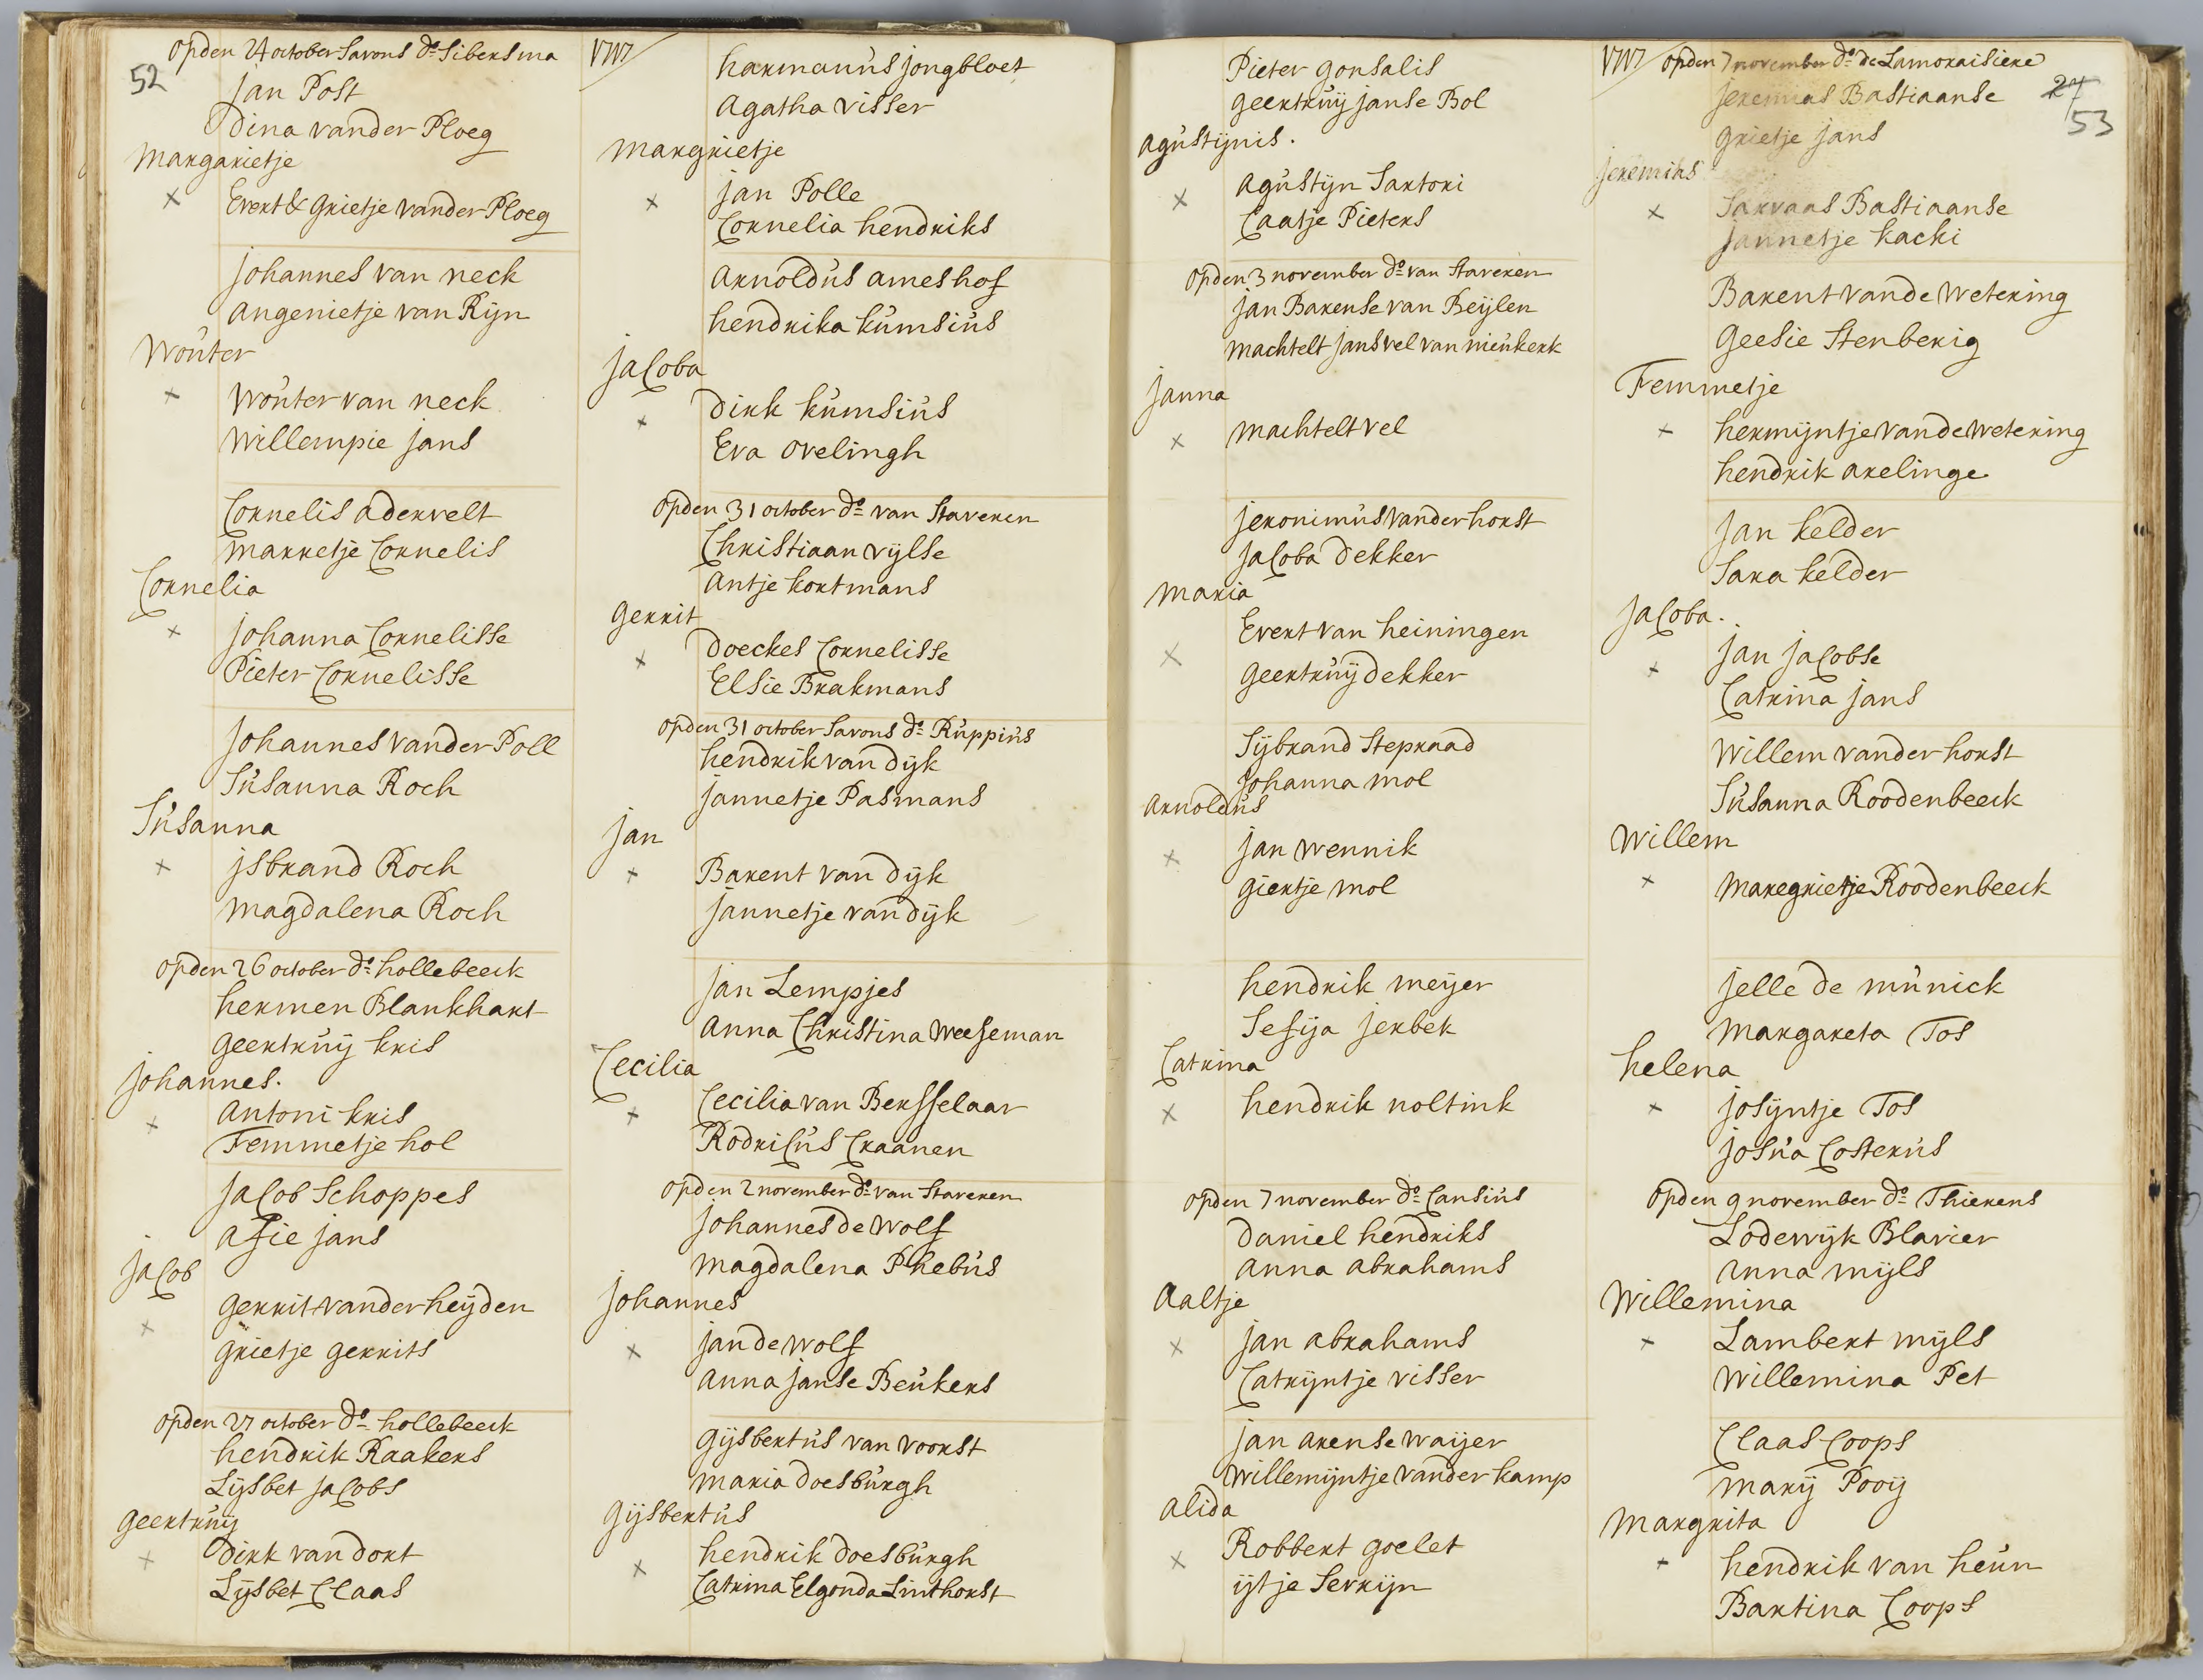 op den 24 october savons ds. Sibersma
52
jan Post
Dina vander Ploeg
margarietje
x
Evert & grietje vander Ploeg
johannes van neck
angenietje van Rijn
wouter
x
wouter van neck
willempie jans
Cornelis adervelt
marretje Cornelis
Cornelia
x
johanna Cornelisse
Pieter Cornelisse
johannes vander Poll
Susanna Roch
Susanna
x
jsbrand Roch
magdalena Roch
op den 26 october ds. hollebeeck
hermen Blankhart
geertruij kris
johannes.
x
antoni kris
Femmetje hol
jacob Schoppes
afie jans
jacob
x
gerrit vander heijden
grietje gerrits
op den 27 october ds. hollebeeck
hendrik Raakers
Lijsbet jacobs
geertruij
x
Dirk van dort
Lijsbet Claas
1717
harmanus jongbloet
agatha visser
margrietje
x
jan Polle
Cornelia hendriks
arnoldus ameshof
hendrika kumsius
jacoba
x
Dirk kumsius
Eva ovelingh
op den 31 october ds. van Staveren
Christiaan vijlse
antje kortmans
gerrit
x
Doeckes Cornelisse
Elsie Brakmans
op den 31 october savons ds. Ruppius
hendrik van dijk
jannetje Pasmans
jan
x
Barent van dijk
jannetje van dijk
jan Lempjes
anna Christina weeseman
Cecilia
x
Cecilia van Bersselaar
Rodricus Craanen
op den 2 november ds. van Staveren
johannes de wolf
magdalena Phebus
johannes
x
jan de wolf
anna janse Beukers
gijsbertus van voorst
maria doesburgh
gijsbertus
x
hendrik doesburgh
Catrina Elgonda Linthorst
Pieter gonsalis
geertruij janse Bol
agustijnis.
x
agustijn Sartori
Caatje Pieters
op den 3 november ds. van Staveren
jan Barense van Beijlen
machtelt jans vel van nieukerk
janna
x
machtelt vel
jeronimus vander horst
jacoba dekker
maria
x
Evert van heiningen
geertruij dekker
Sijbrand Stepraad
johanna mol
arnoldus
x
jan wennik
giertje mol
hendrik meijer
Sefija jerbek
Catrina
x
hendrik noltink
op den 7 november ds. Cansius
Daniel hendriks
anna abrahams
aaltje
x
jan abrahams
Catrijntje visser
jan arense waijer
willemijntje vander kamp
alida
x
Robbert goelet
ijtje Serrijn
1717
op den 7 november ds. de Lamoraisiere
27
53
jeremias Bastiaanse
grietje jans
jeremias
x
Sarvaas Bastiaanse
jannetje kacki
Barent vande wetering
geesie Stenberig
Femmetje
x
hermijntje vande wetering
hendrik arelinge
jan kelder
Sara kelder
jacoba.
x
jan jacobse
Catrina jans
willem vander horst
Susanna Roodenbeeck
willem
x
maregrietje Roodenbeeck
jelle de munick
margareta Tos
helena
x
josijntje Tos
josua Costerus
op den 9 november ds. Thierens
Lodewijk Blavier
anna mijls
willemina
x
Lambert mijls
willemina Pet
Claas Coops
marij Pooij
margrita
x
hendrik van heun
Bartina Coops